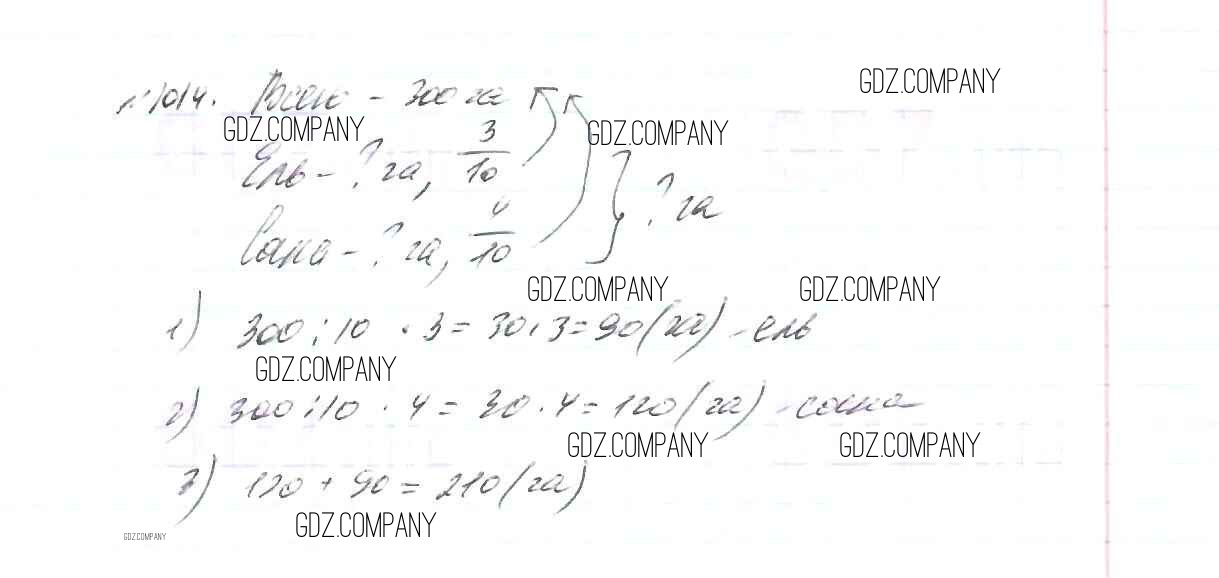 №1014. Всего - 300 га
GDZ.COMPANY
GDZ.COMPANY GDZ.COMPANY
Ель - ? га, 3/10
Сосна - ? га, 4/10 } ? га
GDZ.COMPANY GDZ.COMPANY
1) 300 : 10 · 3 = 30 · 3 = 90 (га) - ель
GDZ.COMPANY
2) 300 : 10 · 4 = 30 · 4 = 120 (га) - сосна
GDZ.COMPANY GDZ.COMPANY
3) 120 + 90 = 210 (га)
GDZ.COMPANY
GDZ.COMPANY